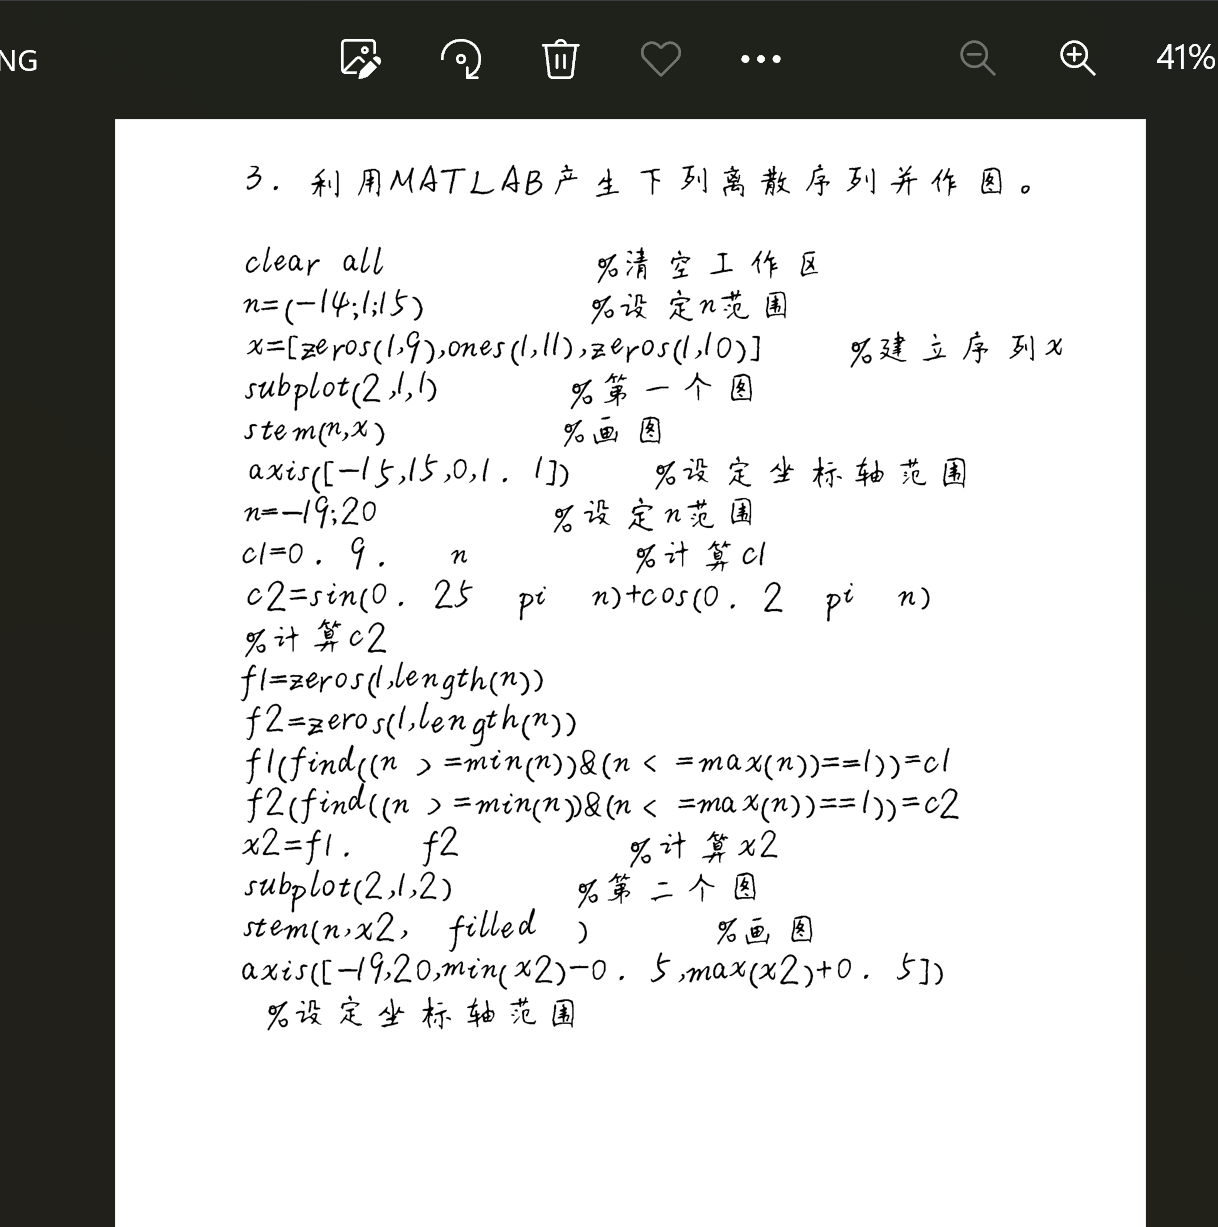 NG
41%
3. 利用MATLAB产生下列离散序列并作图。
clear all %清空工作区
n=(-14;1;15) %设定n范围
x=[zeros(1,9),ones(1,11),zeros(1,10)] %建立序列x
subplot(2,1,1) %第一个图
stem(n,x) %画图
axis([-15,15,0,1. 1]) %设定坐标轴范围
n=-19;20 %设定n范围
c1=0. 9. n %计算c1
c2=sin(0. 25 pi n)+cos(0. 2 pi n)
%计算c2
f1=zeros(1,length(n))
f2=zeros(1,length(n))
f1(find((n >=min(n))&(n < =max(n))==1))=c1
f2(find((n >=min(n))&(n < =max(n))==1))=c2
x2=f1. f2 %计算x2
subplot(2,1,2) %第二个图
stem(n,x2, filled ) %画图
axis([-19,20,min(x2)-0. 5,max(x2)+0. 5])
%设定坐标轴范围